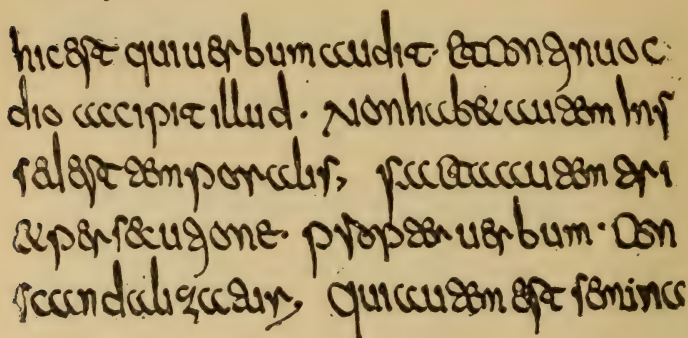 hicest quiuerbumaudit· etcontinuoc
dio accipit illud· Nonhabetautem Ins
sedest temporalis, factaautem tri
etpersecutione· propter uerbum· Con
scandalizatur, Quiautem est semina